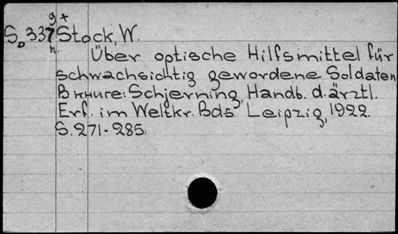 9+
S. 337 Stock, W.
n.
Über optische Hilfsmittel für
schwachsichtig gewordene Soldaten
В книге: Schjerning, Handb. d. ärztl.
Erf. im Weltkr. Bd5. Leipzig, 1922.
S. 271-285.